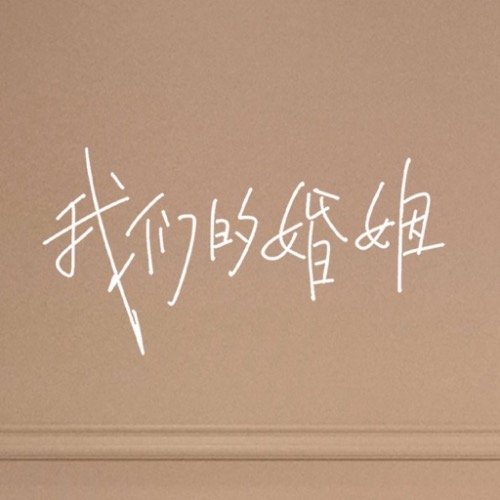 我们的婚姻